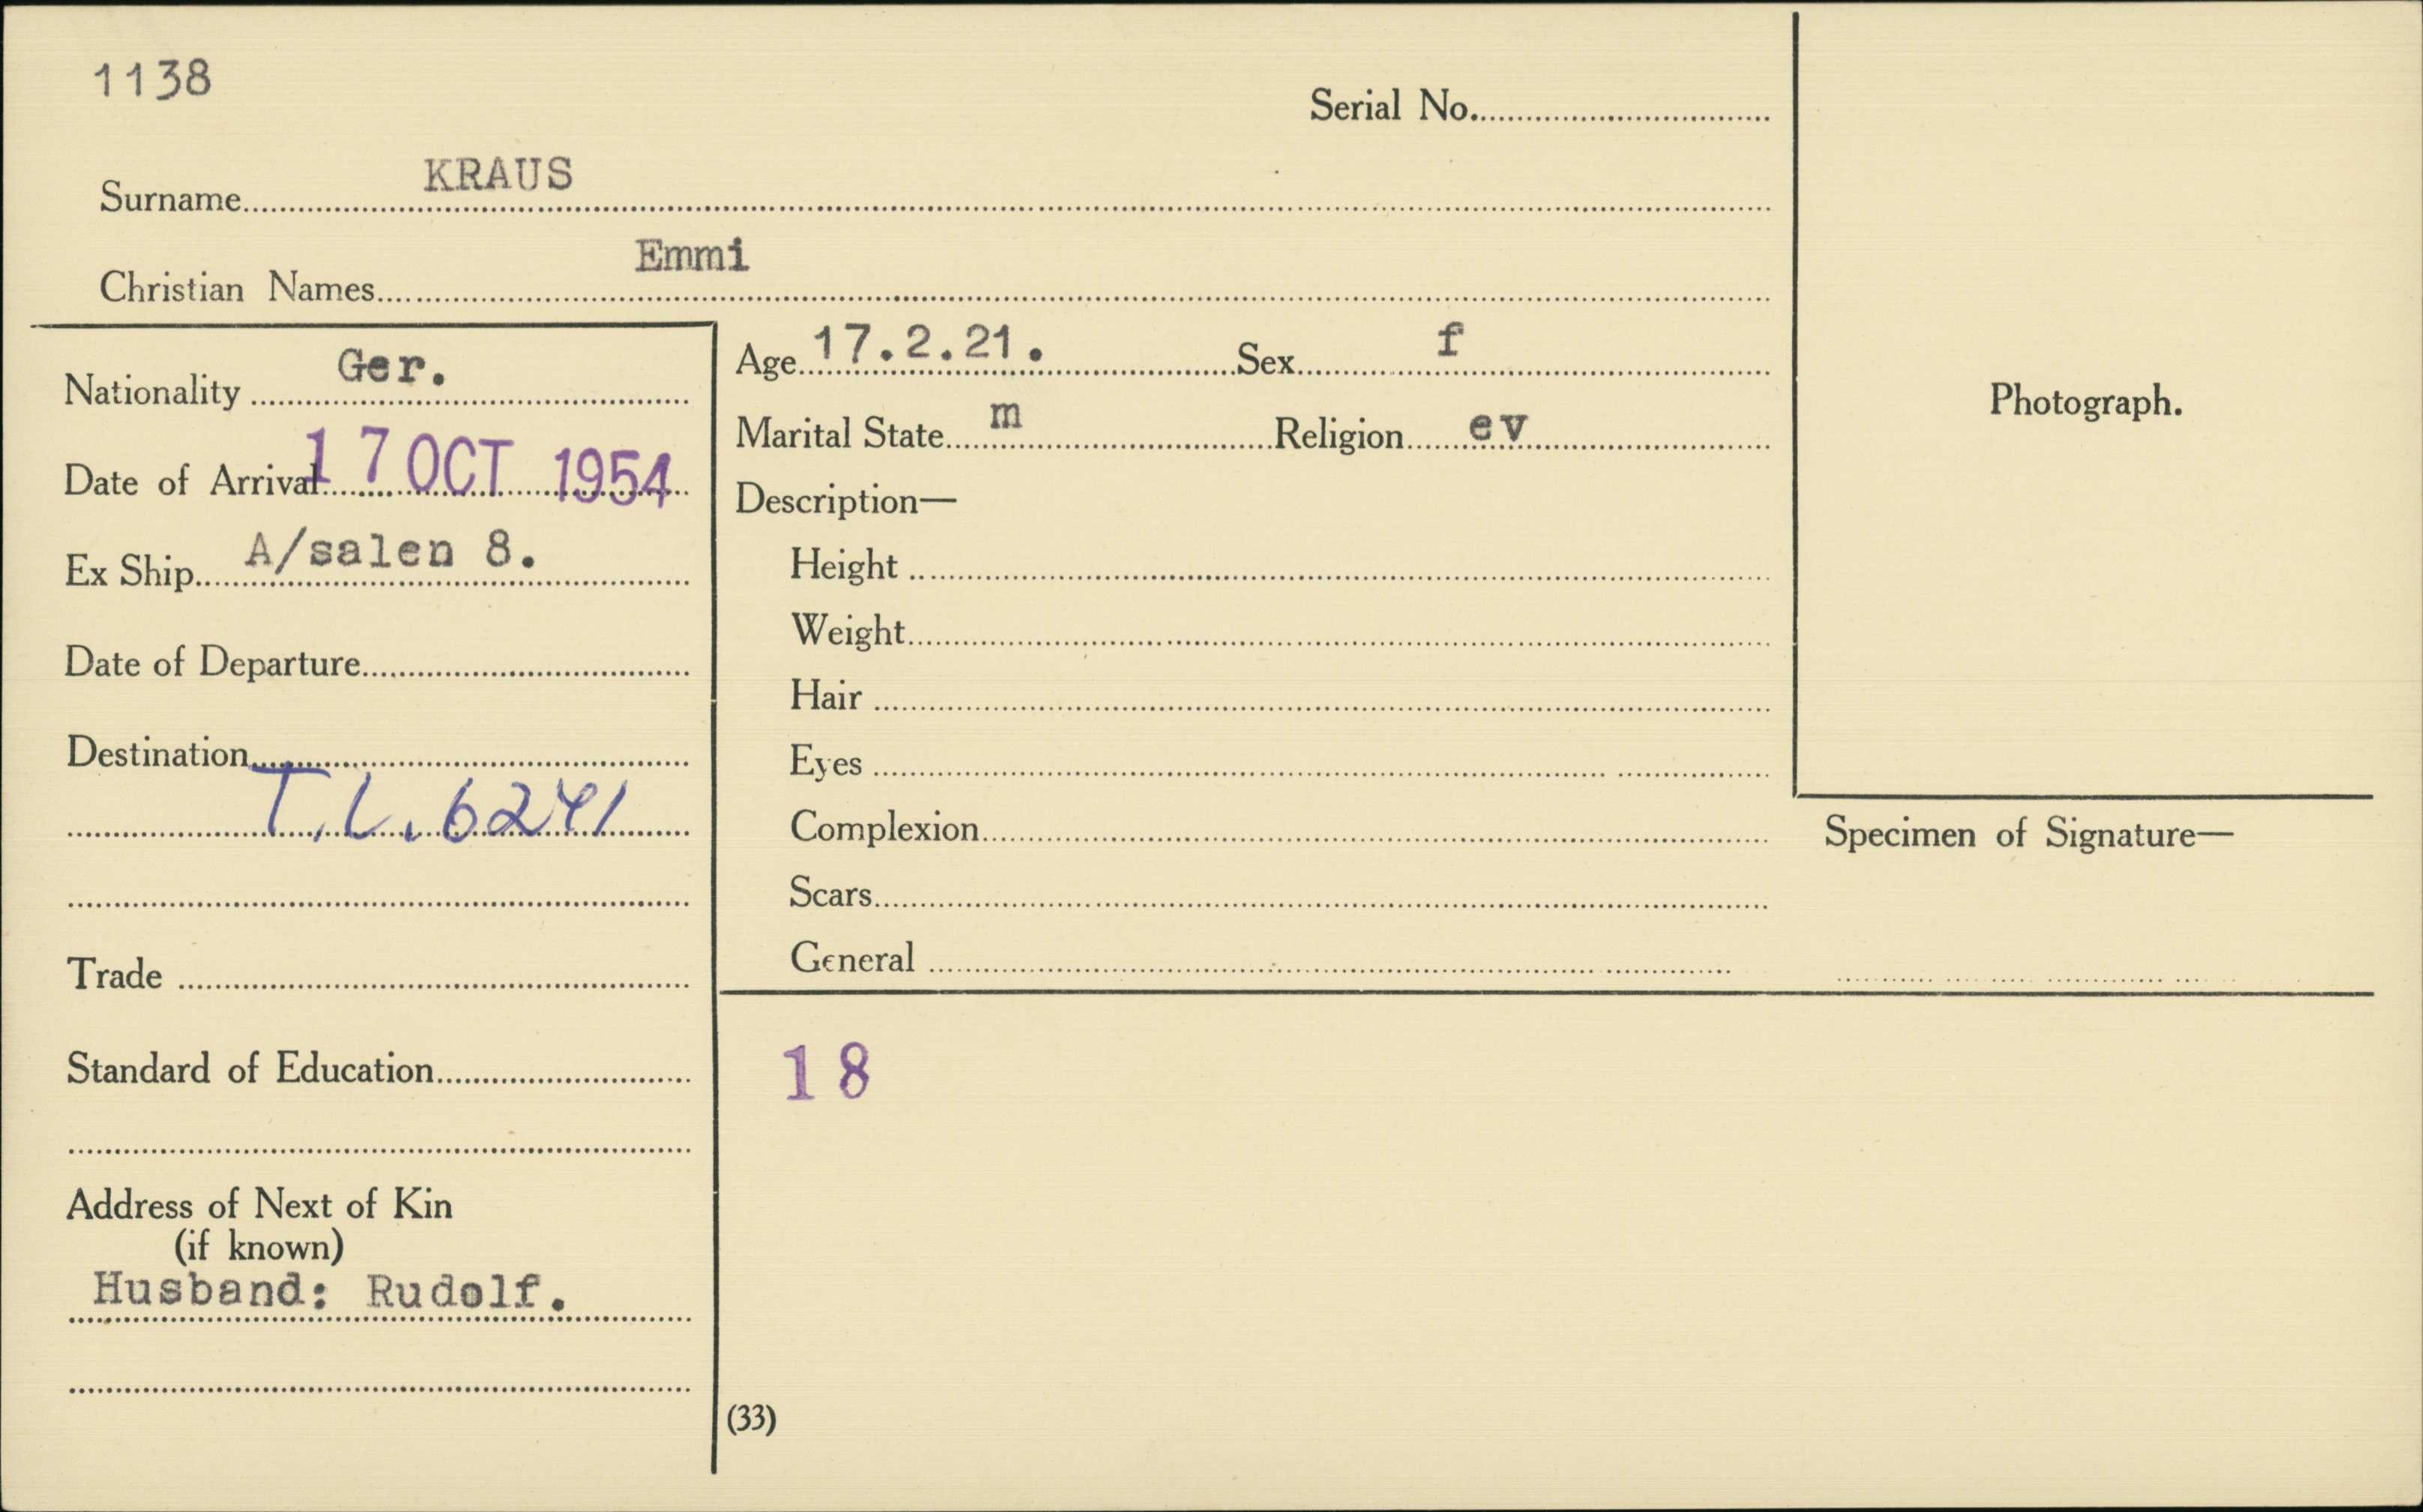 1138
Serial No.
Surname KRAUS
Christian Names Emmi
Nationality Ger.
Date of Arrival 17 OCT 1954
Ex Ship A/salen 8.
Date of Departure
Destination
T.L. 6241
Trade
Standard of Education
Address of Next of Kin
(if known)
Husband: Rudolf.
Age 17.2.21. Sex f
Marital State m Religion ev
Description—
Height
Weight
Hair
Eyes
Complexion
Scars
General
Photograph.
Specimen of Signature—
18
(33)